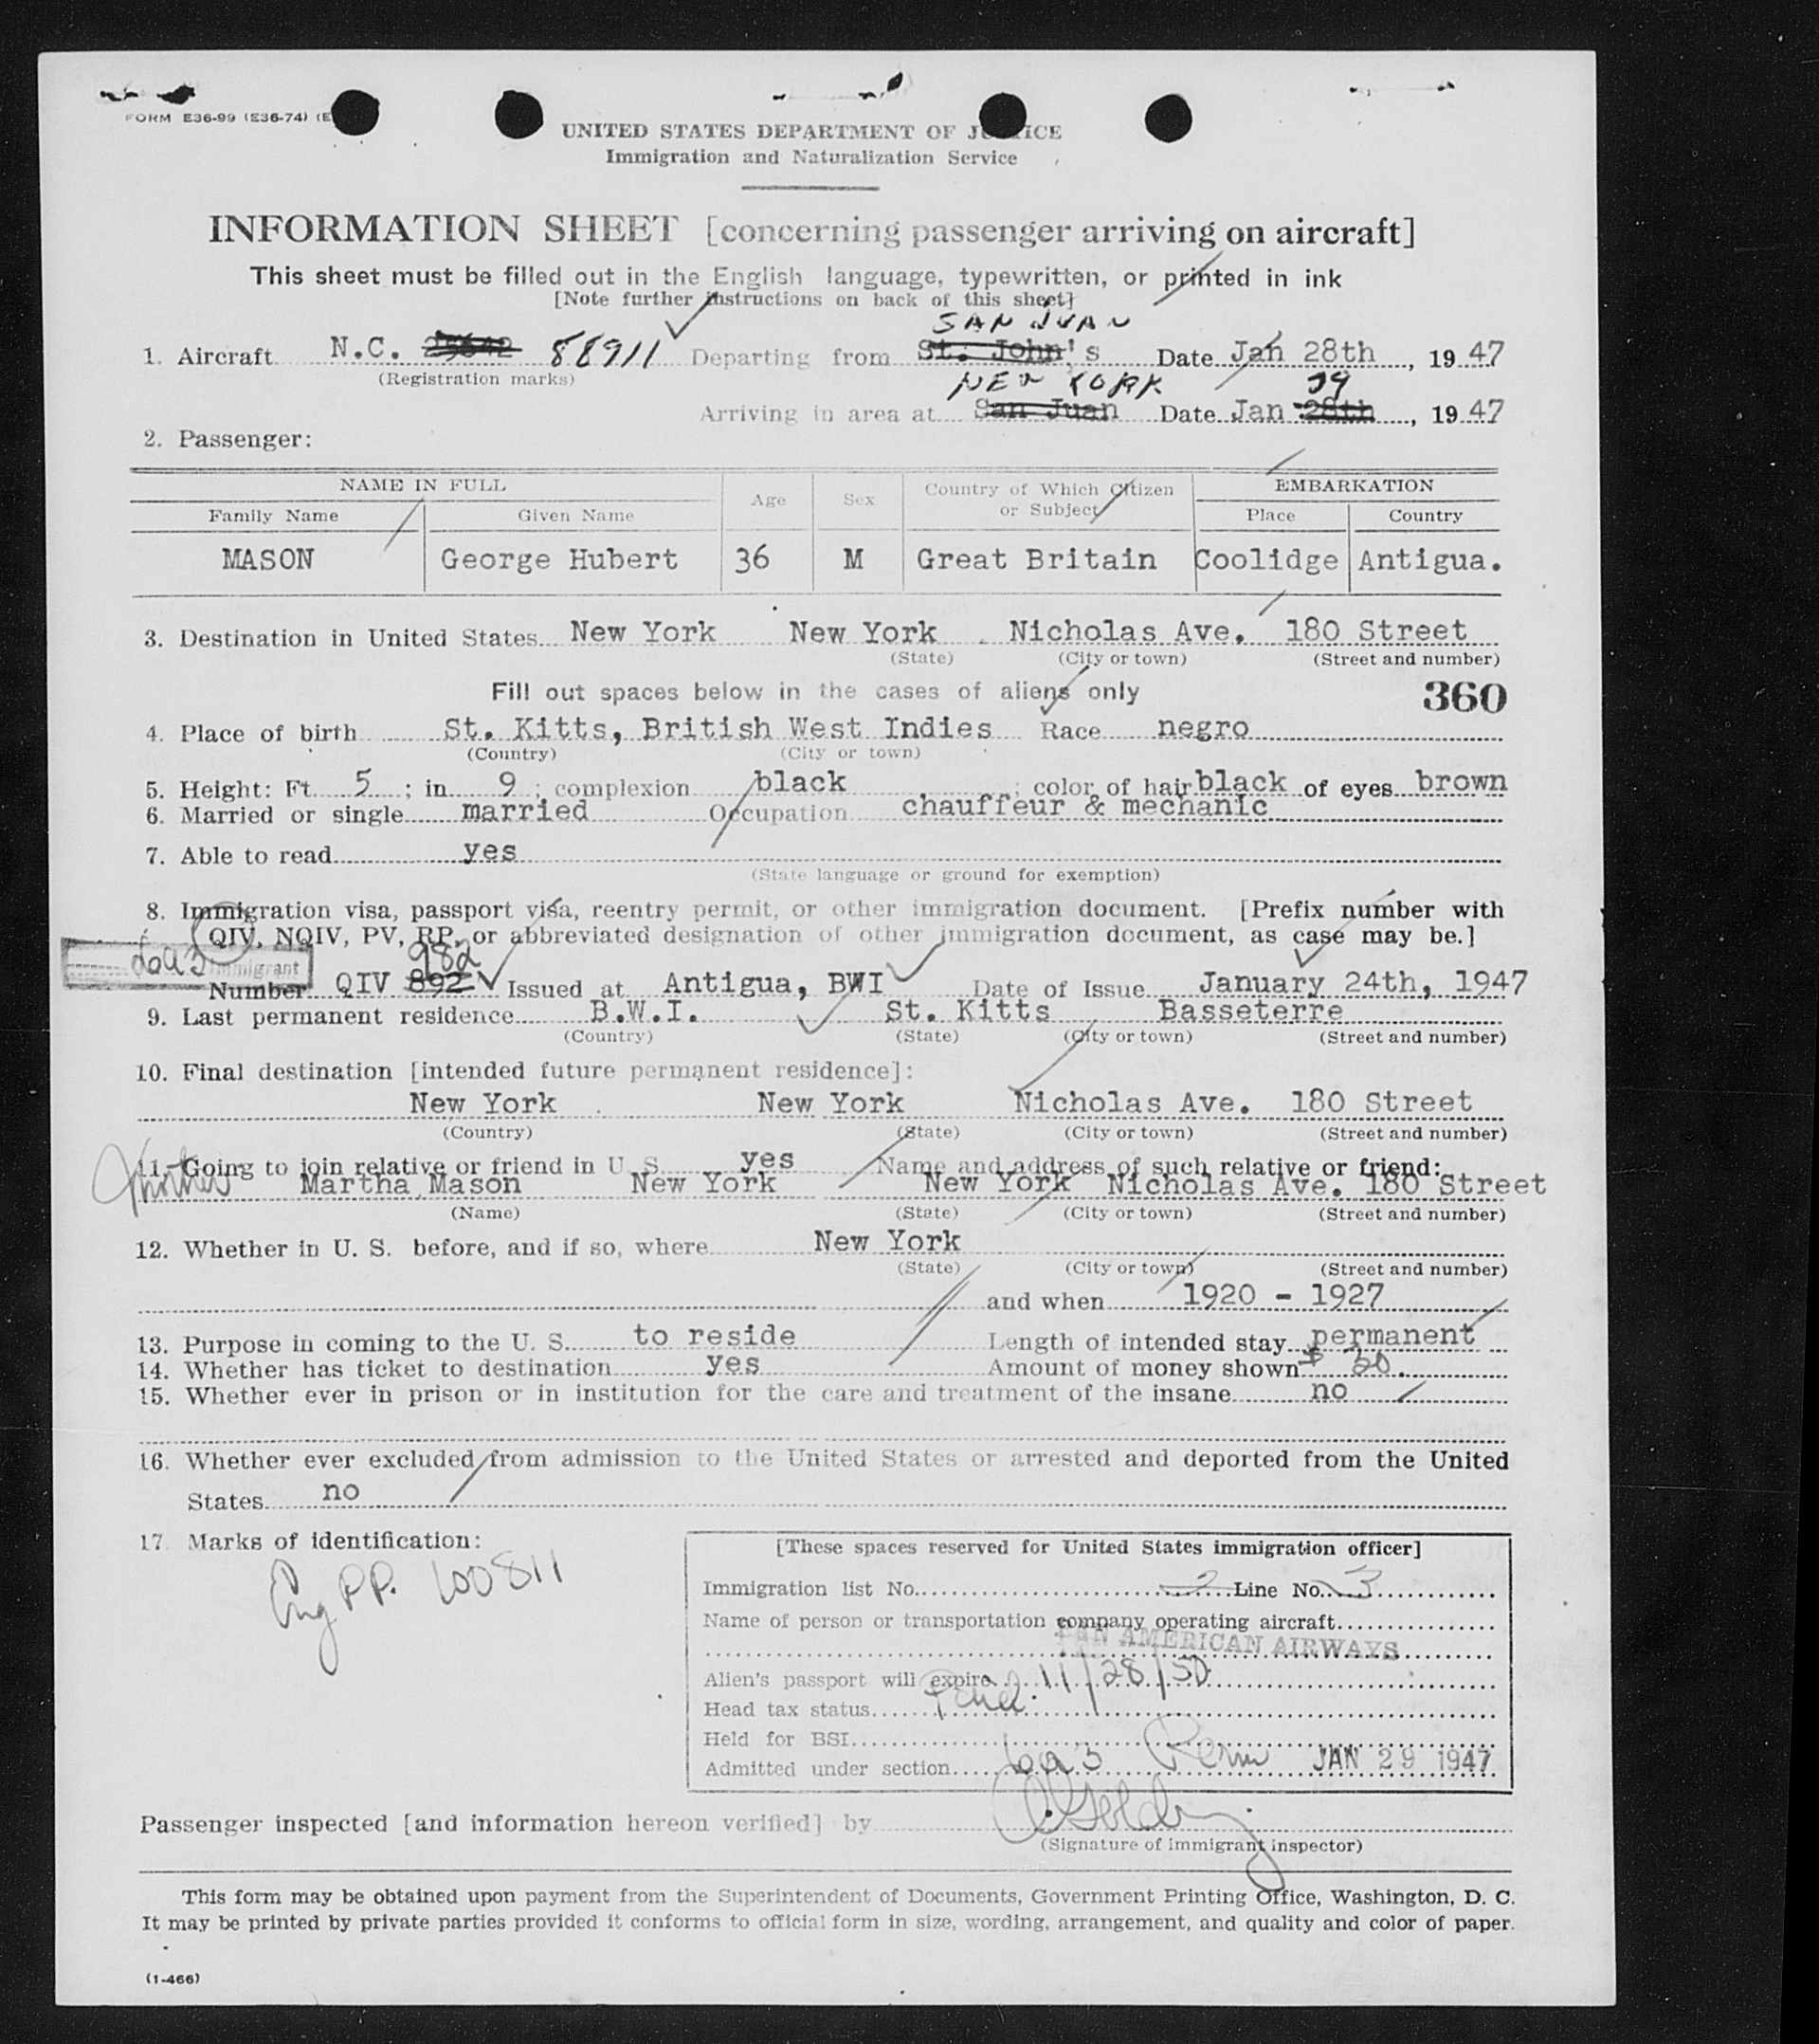 FORM E36-99 (E36-74) (E
UNITED STATES DEPARTMENT OF JUSTICE
Immigration and Naturalization Service
INFORMATION SHEET [concerning passenger arriving on aircraft]
This sheet must be filled out in the English language, typewritten, or printed in ink
[Note further instructions on back of this sheet]
SAN JUAN
1. Aircraft N.C. 25642 88911 Departing from St. John's Date Jan 28th, 19 47
(Registration marks)
NEW YORK 29
Arriving in area at San Juan Date Jan 28th, 19 47
2. Passenger:
NAME IN FULL Age Sex Country of Which Citizen or Subject EMBARKATION
Family Name Given Name Place Country
MASON George Hubert 36 M Great Britain Coolidge Antigua.
3. Destination in United States New York New York Nicholas Ave. 180 Street
(State) (City or town) (Street and number)
Fill out spaces below in the cases of aliens only 360
4. Place of birth St. Kitts, British West Indies Race negro
(Country) (City or town)
5. Height: Ft. 5 ; in 9 ; complexion black ; color of hair black of eyes brown
6. Married or single married Occupation chauffeur & mechanic
7. Able to read yes
(State language or ground for exemption)
8. Immigration visa, passport visa, reentry permit, or other immigration document. [Prefix number with
QIV, NQIV, PV, RP, or abbreviated designation of other immigration document, as case may be.]
6a3 Immigrant 982
Number QIV 892 Issued at Antigua, BWI Date of Issue January 24th, 1947
9. Last permanent residence B.W.I. St. Kitts Basseterre
(Country) (State) (City or town) (Street and number)
10. Final destination [intended future permanent residence]:
New York New York Nicholas Ave. 180 Street
(Country) (State) (City or town) (Street and number)
11. Going to join relative or friend in U. S. yes Name and address of such relative or friend:
Martha Mason New York New York Nicholas Ave. 180 Street
(Name) (State) (City or town) (Street and number)
12. Whether in U. S. before, and if so, where New York
(State) (City or town) (Street and number)
and when 1920 - 1927
13. Purpose in coming to the U. S. to reside Length of intended stay permanent
14. Whether has ticket to destination yes Amount of money shown $ 30.
15. Whether ever in prison or in institution for the care and treatment of the insane no
16. Whether ever excluded from admission to the United States or arrested and deported from the United
States no
17. Marks of identification:
Eng PP. 100811
[These spaces reserved for United States immigration officer]
Immigration list No. 2 Line No. 3
Name of person or transportation company operating aircraft
PAN AMERICAN AIRWAYS
Alien's passport will expire 11/28/50
Head tax status
Held for BSI
Admitted under section 6a3 Perm JAN 29 1947
Passenger inspected [and information hereon verified] by
(Signature of immigrant inspector)
This form may be obtained upon payment from the Superintendent of Documents, Government Printing Office, Washington, D. C.
It may be printed by private parties provided it conforms to official form in size, wording, arrangement, and quality and color of paper.
(1-466)